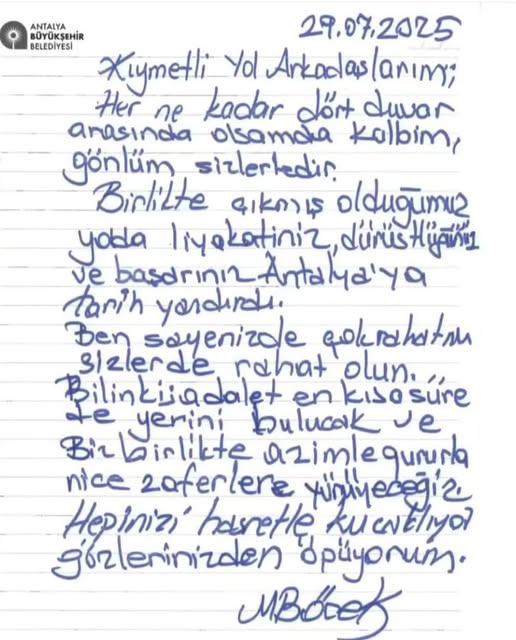 ANTALYA
BÜYÜKŞEHİR
BELEDİYESİ
29.07.2025
Kıymetli Yol Arkadaşlarım;
Her ne kadar dört duvar
arasında olsamda kalbim,
gönlüm sizlerledir.
Birlikte çıkmış olduğumuz
yolda liyakatiniz, dürüstlüğünüz
ve başarınız Antalya'ya
tarih yazdırdı.
Ben sayenizde çok rahatım
sizlerde rahat olun.
Bilinki adalet en kısa süre
de yerini bulucak ve
Biz birlikte azimle gururla
nice zaferlere yürüyeceğiz.
Hepinizi hasretle kucaklıyor
gözlerinizden öpüyorum.
MBöcek